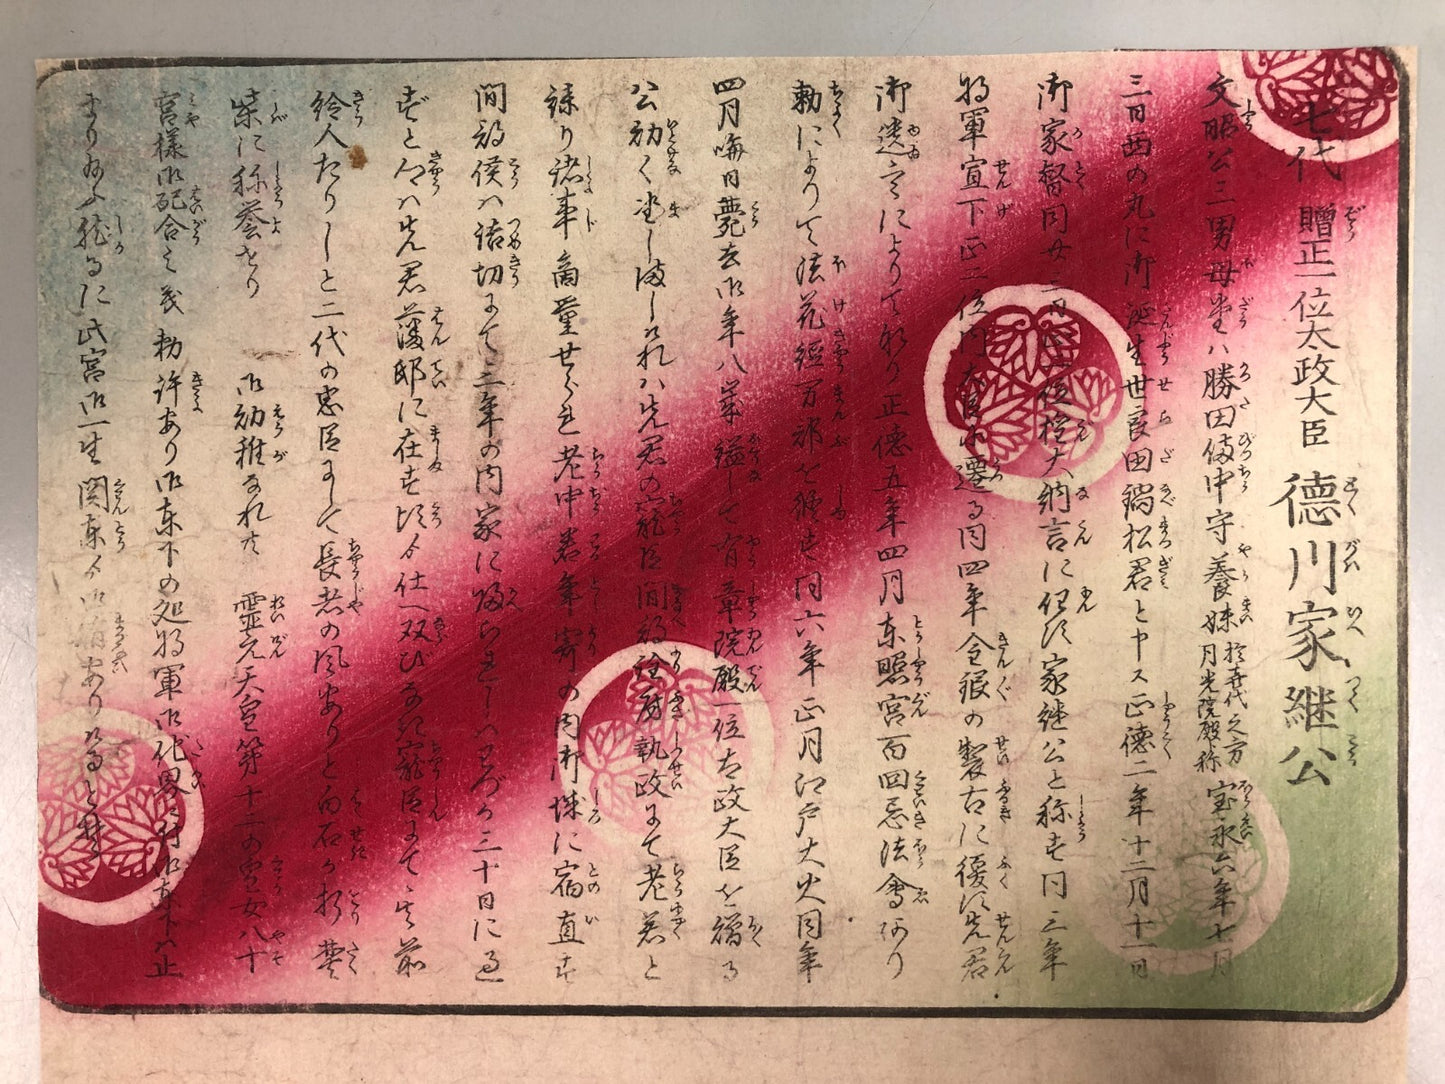 七代 贈正一位太政大臣 德川家継公
文昭公三男母堂ハ勝田備中守養妹 於喜代之方 月光院殿ト称 宝永六年七月
三日西の丸に御誕生世良田鍋松君と申ス正德二年十二月十一日
御家督同廿三日正二位権大納言に任じ家継公と称す同三年
将軍宣下正二位内大臣に遷る同四年金銀の製古に復す先君
御遺言によりて也正德五年四月東照宮百回忌法會あり
勅によりて法花経万部を修す同六年正月江戸大火同年
四月晦日薨去御年八歳謚して有章院殿一位太政大臣を贈る
公幼く坐し海しけれハ先君の寵臣間部詮房執政にて老若と
諌り諸事商量せられ老中若年寄の内御城に宿直す
間部侯ハ詰切にて三年の内家に帰られしハわづか三十日に過
ずと云ハ先君藩邸に在す頃より仕へ双びなき寵臣にて
給人たりしと二代の忠臣にして長者の風ありと白石が折焚
柴に称誉せり 御幼稚なれ共 霊元天皇第十三の皇女八十
宮様御配合之義勅許あり御東下の処将軍御他界に付御東下ハ止
まり給ふ然るに此宮御一生関東より御賄ありけると